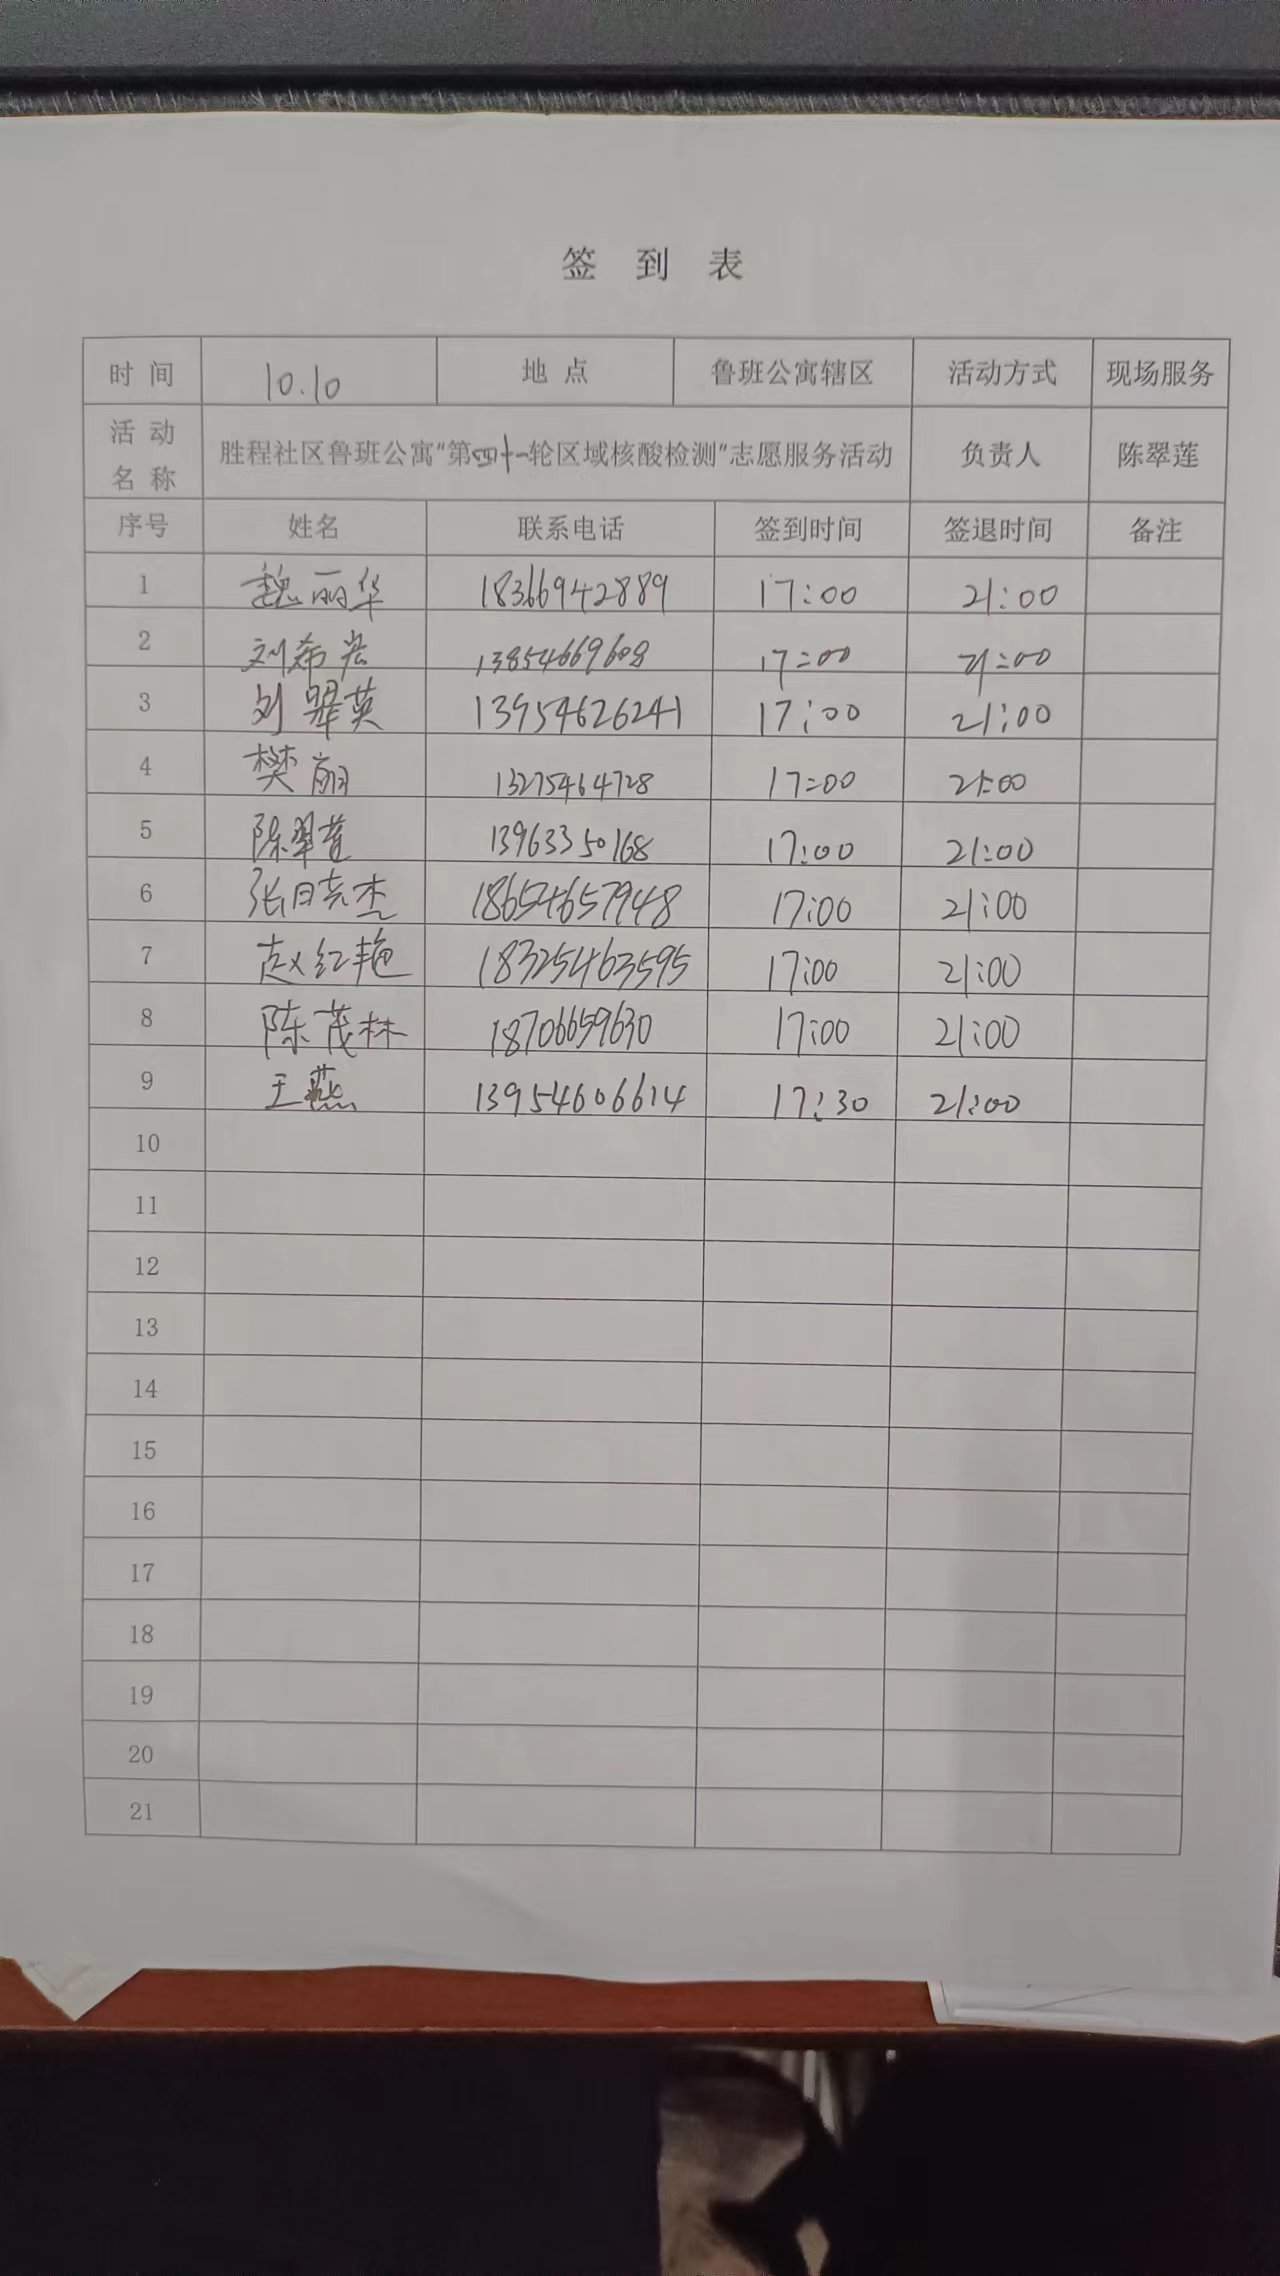 签 到 表
时 间 10.10 地 点 鲁班公寓辖区 活动方式 现场服务
活 动 名 称 胜程社区鲁班公寓“第四十一轮区域核酸检测”志愿服务活动 负责人 陈翠莲
序号 姓名 联系电话 签到时间 签退时间 备注
1 魏丽华 18366942889 17:00 21:00
2 刘希 13854669608 17:00 21:00
3 刘翠英 13954626241 17:00 21:00
4 樊丽 13275464728 17:00 21:00
5 陈翠莲 13963350168 17:00 21:00
6 张日志杰 18654657948 17:00 21:00
7 赵红艳 18325463595 17:00 21:00
8 陈茂林 18706659630 17:00 21:00
9 王燕 13954606614 17:30 21:00
10
11
12
13
14
15
16
17
18
19
20
21